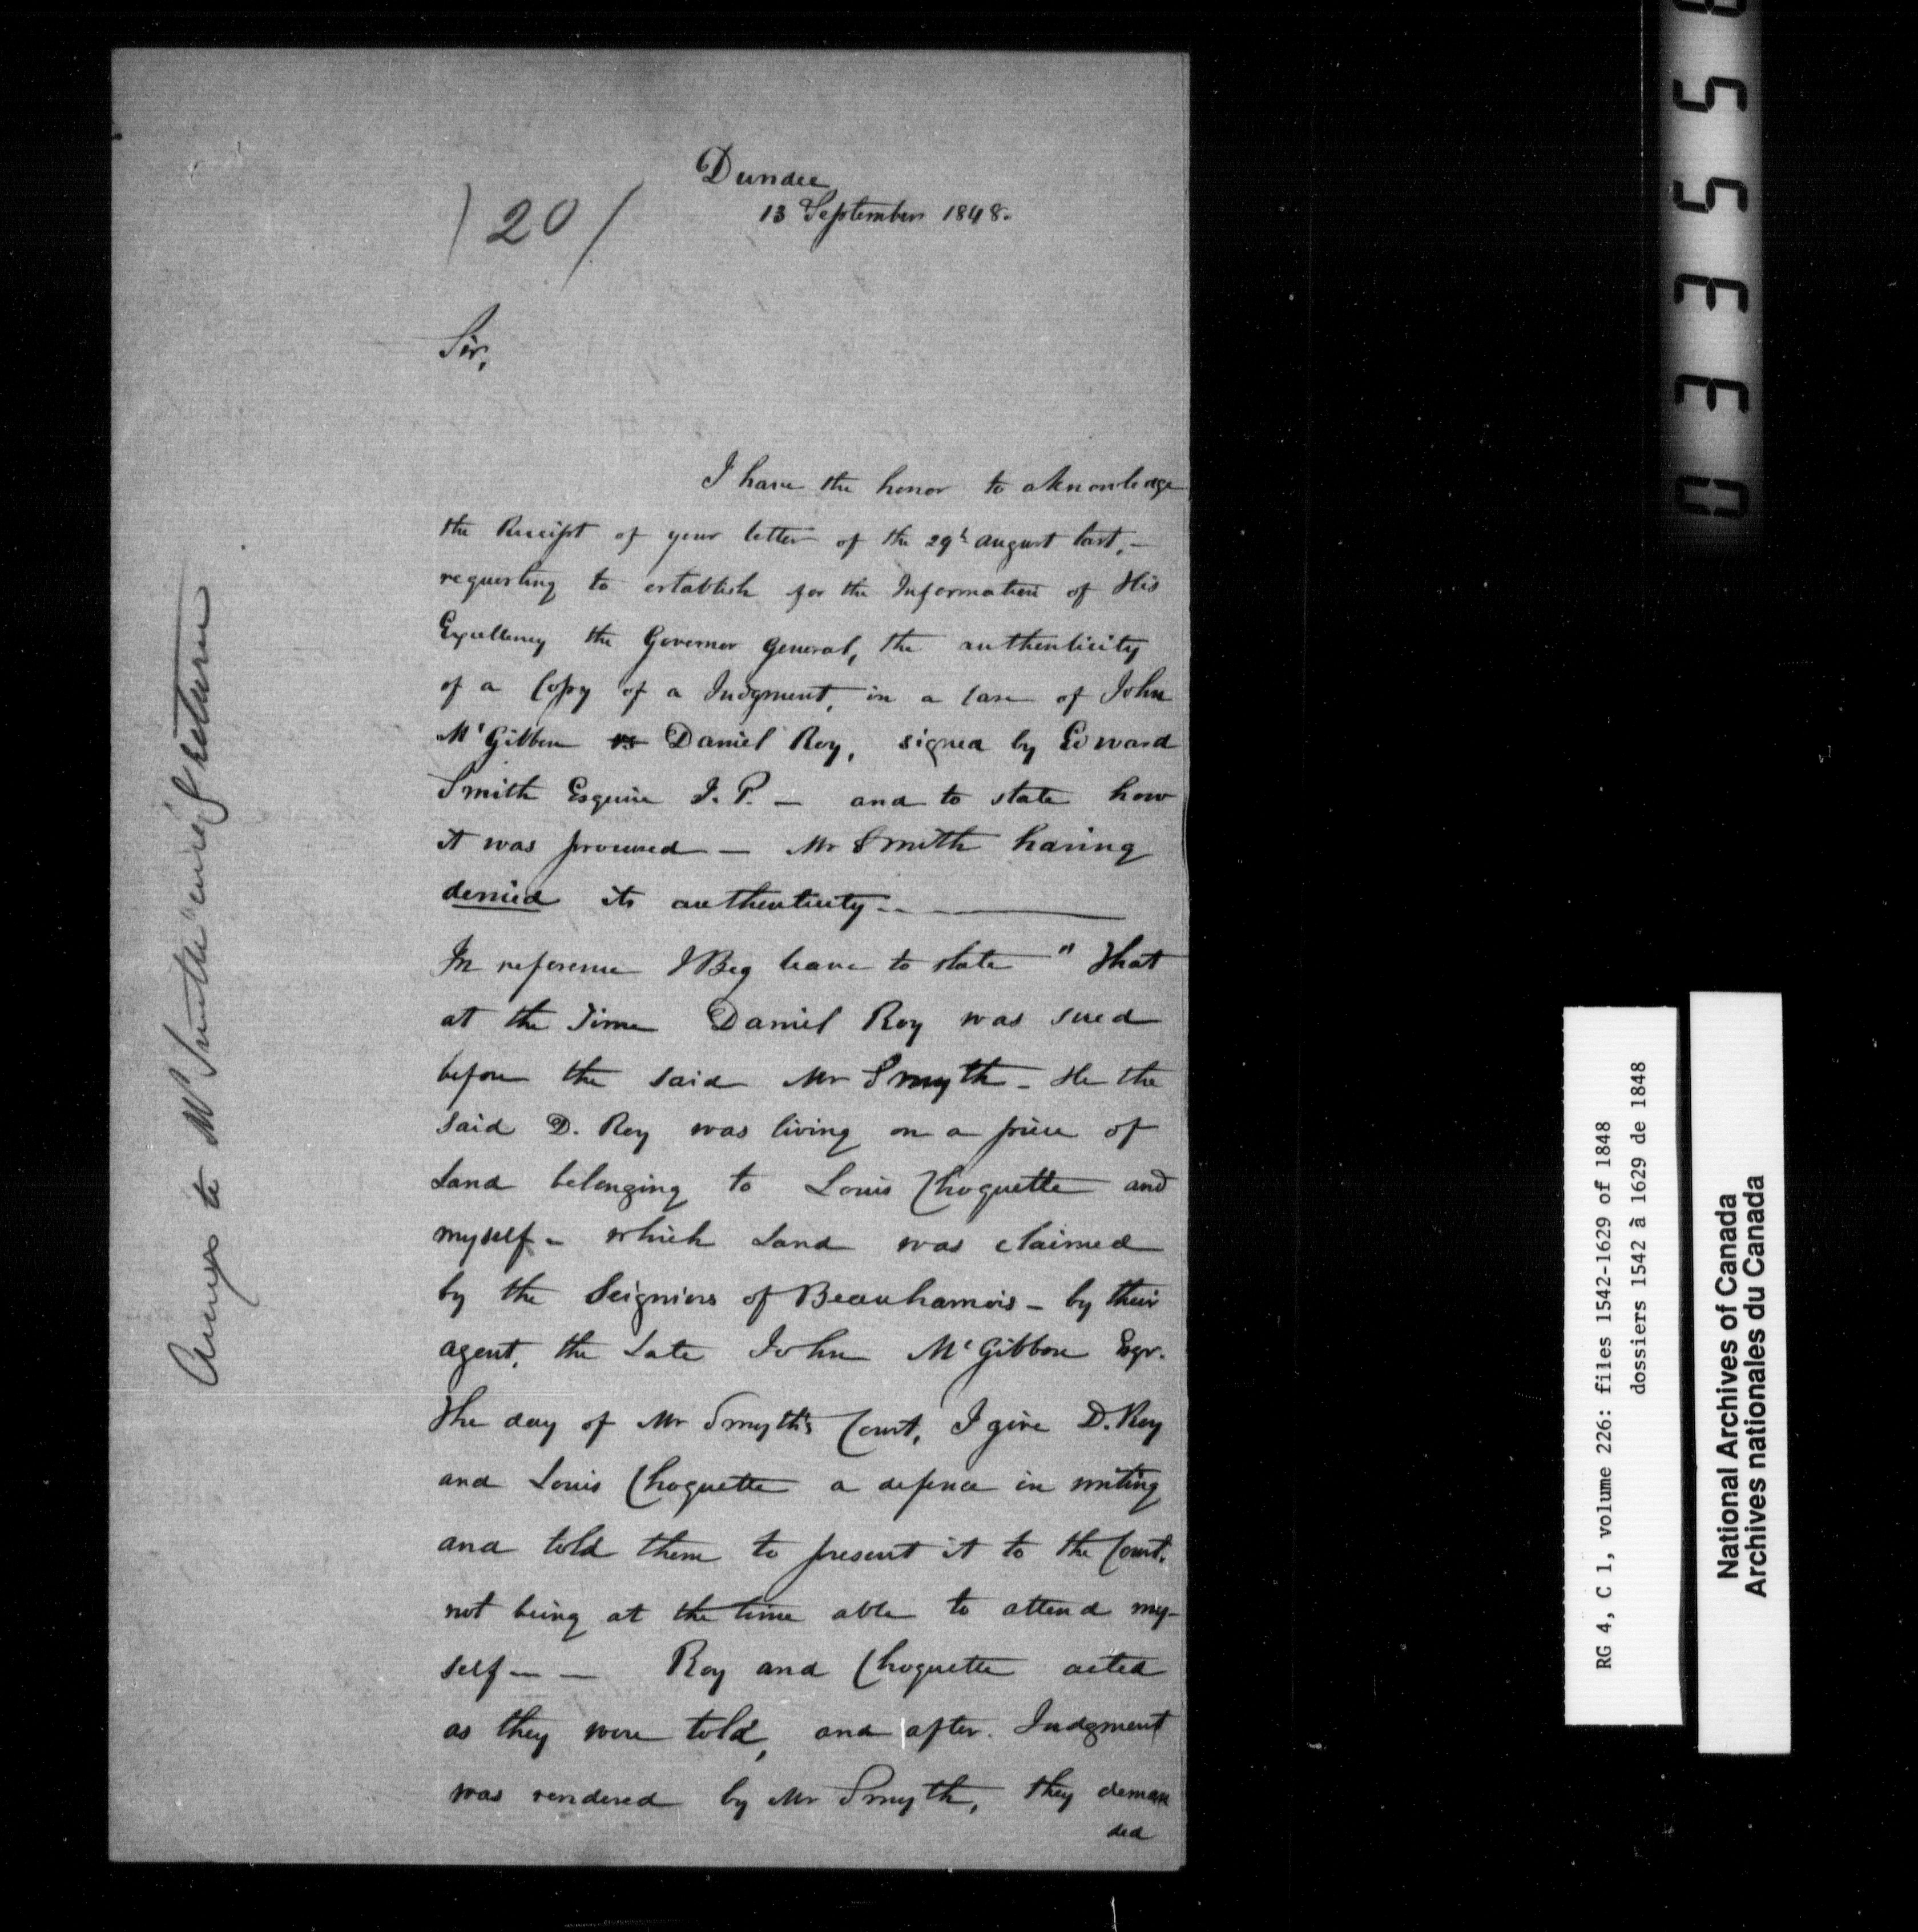 Dundee
13 September 1848.
) 20 /
Sir,
I have the honor to aknowledge
the Receipt of your letter of the 29th august last, —
requesting to establish for the Information of His
Excellency the Governor General, the authenticity
of a Copy of a Judgment, in a Case of John
McGibbon vs Daniel Roy, signed by Edward
Smith Esquire J. P. — and to state how
it was procured — Mr Smith having
denied its authenticity —
In reference I Beg leave to state " That
at the Time Daniel Roy was sued
before the said Mr Smyth - He the
said D. Roy was living on a piece of
Land belonging to Louis Choquette and
myself - which Land was claimed
by the Seigniors of Beauharnois - by their
agent, the Late John McGibbon Esqr.
The day of Mr Smyth's Court, I give D. Roy
and Louis Choquette a defence in writing
and told them to present it to the Court,
not being at the time able to attend my-
self — — Roy and Choquette acted
as they were told, and after Judgment
was rendered by Mr Smyth, they deman
ded
to Mr Smith return
RG 4, C 1, volume 226: files 1542-1629 of 1848
dossiers 1542 à 1629 de 1848
National Archives of Canada
Archives nationales du Canada
03355